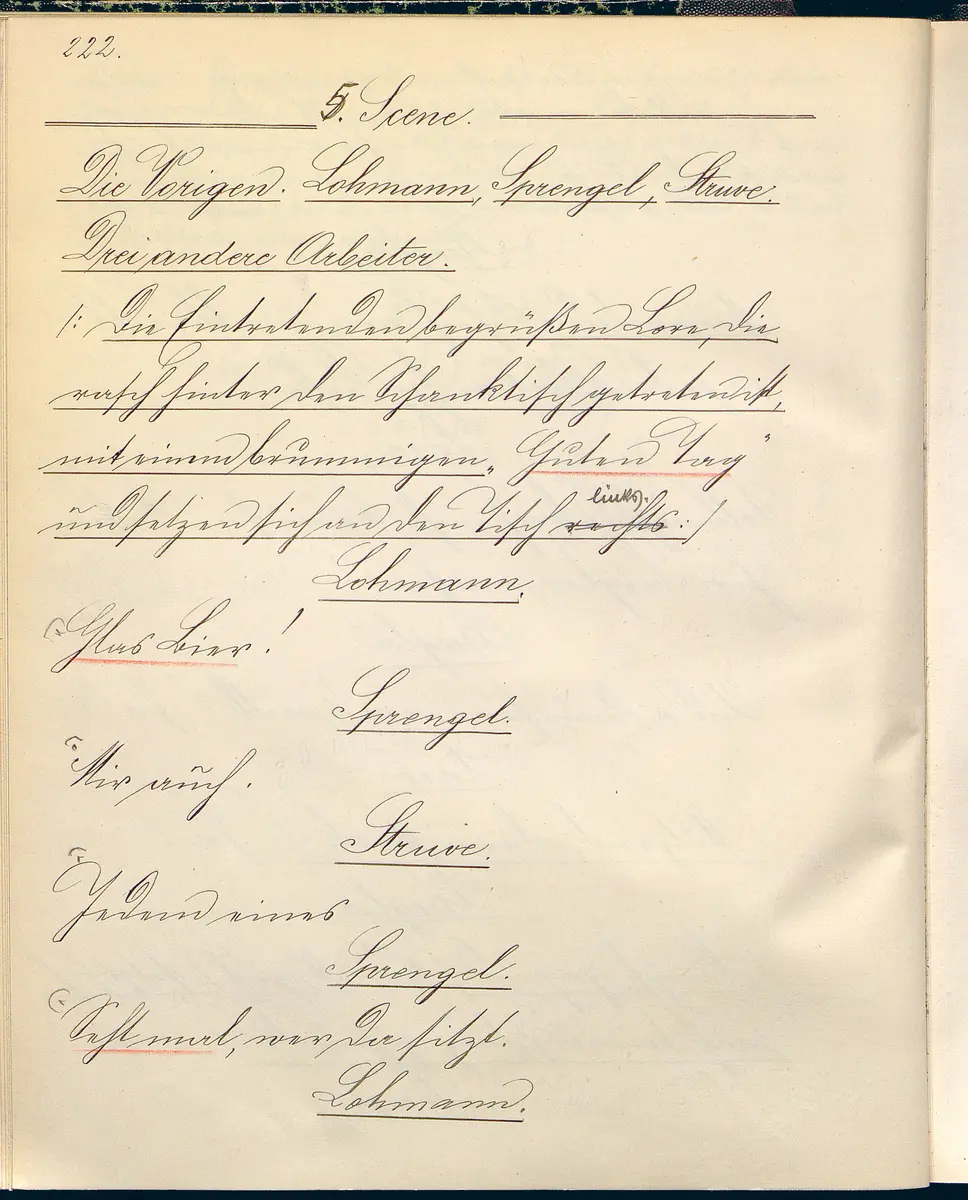 222.
5. Scene.
Die Vorigen. Lohmann, Sprengel, Struve.
Drei andere Arbeiter.
/: Die Eintretenden begrüßen Lore, die
rasch hinter den Schanktisch getreten ist,
mit einem brummigen „Guten Tag"
links.
und setzen sich an den Tisch rechts :/
Lohmann.
Glas Bier!
Sprengel.
Mir auch.
Struve.
Jedem eines
Sprengel.
Seht mal, wer da sitzt.
Lohmann.